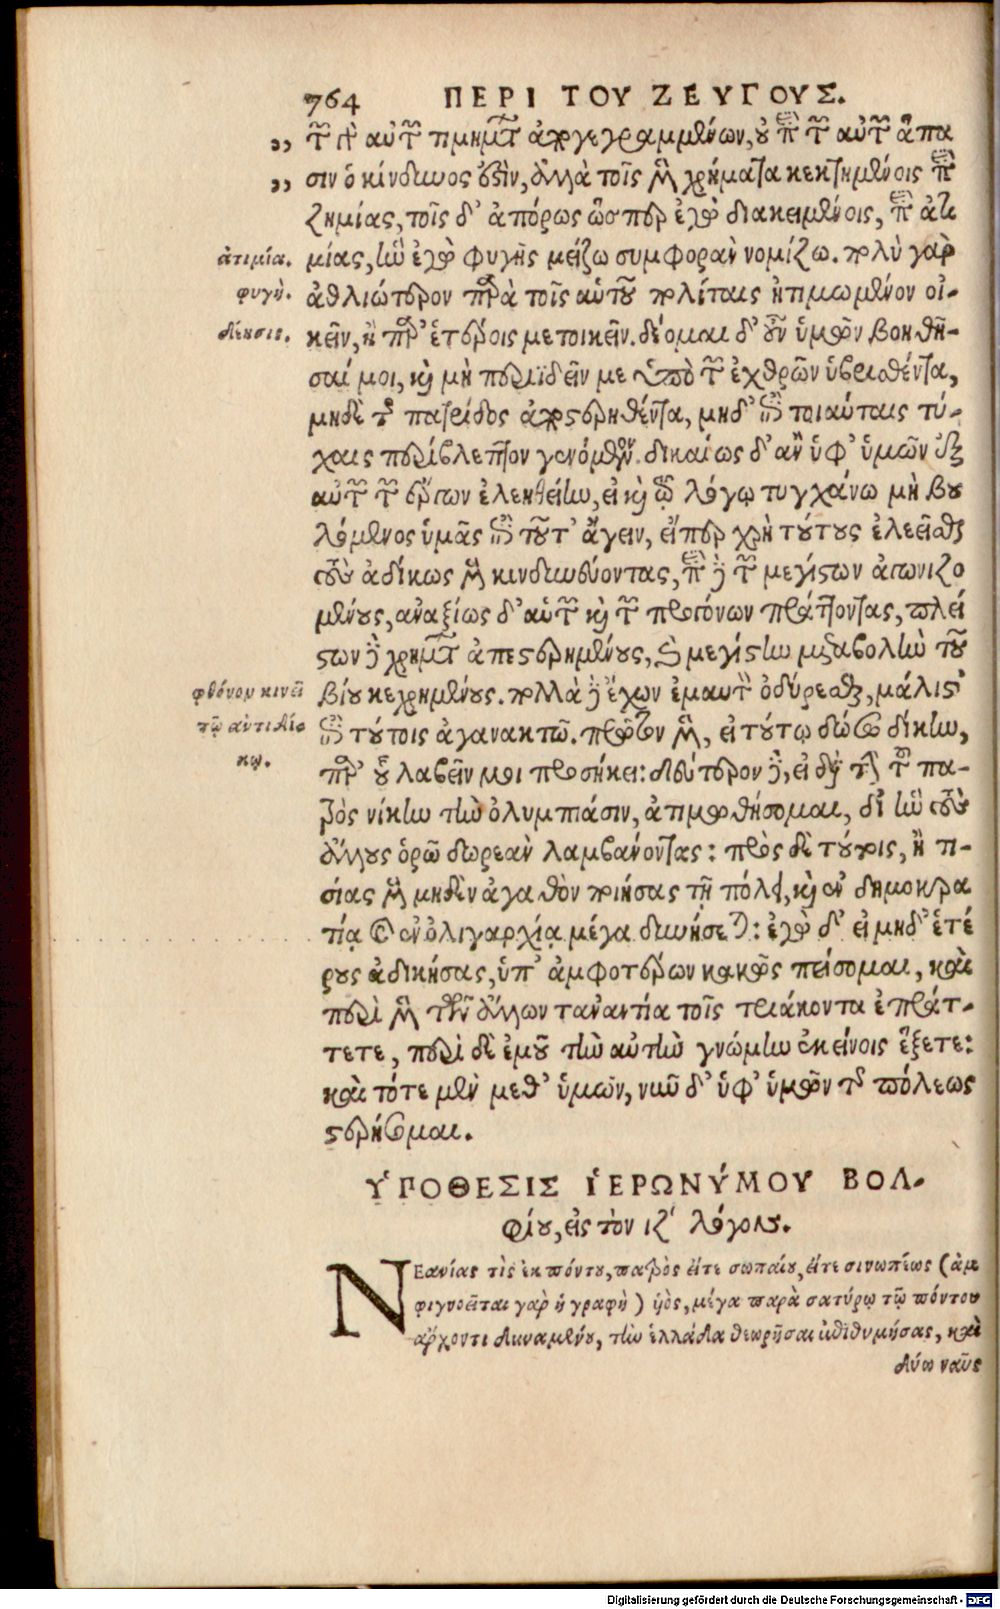 764 ΠΕΡΙ ΤΟΥ ΖΕΥΓΟΥΣ.
„ τῶν γὰρ αὐτῶν τιμημάτων ἀπογεγραμμένων, οὐ περὶ τῶν αὐτῶν ἅπα
„ σιν ὁ κίνδυνός ἐστιν, ἀλλὰ τοῖς μὲν χρήματα κεκτημένοις περὶ
ζημίας, τοῖς δ' ἀπόρως ὥσπερ ἐγὼ διακειμένοις, περὶ ἀτι
ἀτιμία. μίας, ἣν ἐγὼ φυγῆς μείζω συμφορὰν νομίζω. πολὺ γὰρ
φυγή. ἀθλιώτερον παρὰ τοῖς αὑτοῦ πολίταις ἠτιμωμένον οἰ-
δέησις. κεῖν, ἢ παρ' ἑτέροις μετοικεῖν. δέομαι δ' οὖν ὑμῶν βοηθῆ-
σαί μοι, καὶ μὴ περιϊδεῖν με ὑπὸ τῶν ἐχθρῶν ὑβρισθέντα,
μηδὲ τῆς πατρίδος ἀποστερηθέντα, μηδ' ἐπὶ τοιαύταις τύ-
χαις περίβλεπτον γενόμενον. δικαίως δ' ἂν ὑφ' ὑμῶν ἐξ
αὐτῶν τῶν ἔργων ἐλεηθείην, εἰ καὶ τῷ λόγῳ τυγχάνω μὴ δυ
νάμενος ὑμᾶς ἐπὶ τοῦτ' ἄγειν, εἴπερ χρὴ τούτους ἐλεεῖσθαι
τοὺς ἀδίκως μὲν κινδυνεύοντας, περὶ δὲ τῶν μεγίστων ἀγωνιζο
μένους, ἀναξίως δ' αὑτῶν καὶ τῶν προγόνων πράττοντας, πλεί
στων δὲ χρημάτων ἀπεστερημένους, καὶ μεγίστῃ μεταβολῇ τοῦ
φθόνον κινεῖ βίου κεχρημένους. πολλὰ δὲ ἔχων ἐμαυτὸν ὀδύρεσθαι, μάλιστ'
τῷ ἀντιδίσ ἐπὶ τούτοις ἀγανακτῶ. πρῶτον μὲν, εἰ τούτῳ δώσω δίκην,
κῳ. παρ' οὗ λαβεῖν μοι προσήκει: δεύτερον δὲ, εἰ διὰ τὴν τοῦ πα-
τρὸς νίκην τὴν ὀλυμπιάσιν, ἀτιμωθήσομαι, δι' ἣν τοὺς
ἄλλους ὁρῶ δωρεὰν λαμβάνοντας: πρὸς δὲ τούτοις, ἢ τι-
σίας μὲν μηδὲν ἀγαθὸν ποιήσας τῇ πόλει, καὶ ἐν δημοκρα
τίᾳ καὶ ἐν ὀλιγαρχίᾳ μέγα δυνήσεται: ἐγὼ δ' εἰ μηδ' ἑτέ
ρους ἀδικήσας, ὑπ' ἀμφοτέρων κακῶς πείσομαι, καὶ
περὶ μὲν τῶν ἄλλων τἀναντία τοῖς τριάκοντα ἐπράτ-
τετε, περὶ δὲ ἐμοῦ τὴν αὐτὴν γνώμην ἐκείνοις ἕξετε:
καὶ τότε μὲν μεθ' ὑμῶν, νῦν δ' ὑφ' ὑμῶν τῆς πόλεως
στερήσομαι.
ΥΠΟΘΕΣΙΣ ἹΕΡΩΝΥΜΟΥ ΒΟΛ-
φίου, εἰς τὸν ιζ' λόγον.
ΝΕανίας τὶς ἐκ πόντου, πατρὸς εἴτε σωπαίου, εἴτε σινωπέως (ἀμ
φιγνοεῖται γὰρ ἡ γραφὴ) υἱὸς, μέγα παρὰ σατύρῳ τῷ πόντου
ἄρχοντι δυναμένου, τὴν ἑλλάδα θεωρῆσαι ἐπιθυμήσας, καὶ
δύο ναῦς
Digitalisierung gefördert durch die Deutsche Forschungsgemeinschaft - DFG